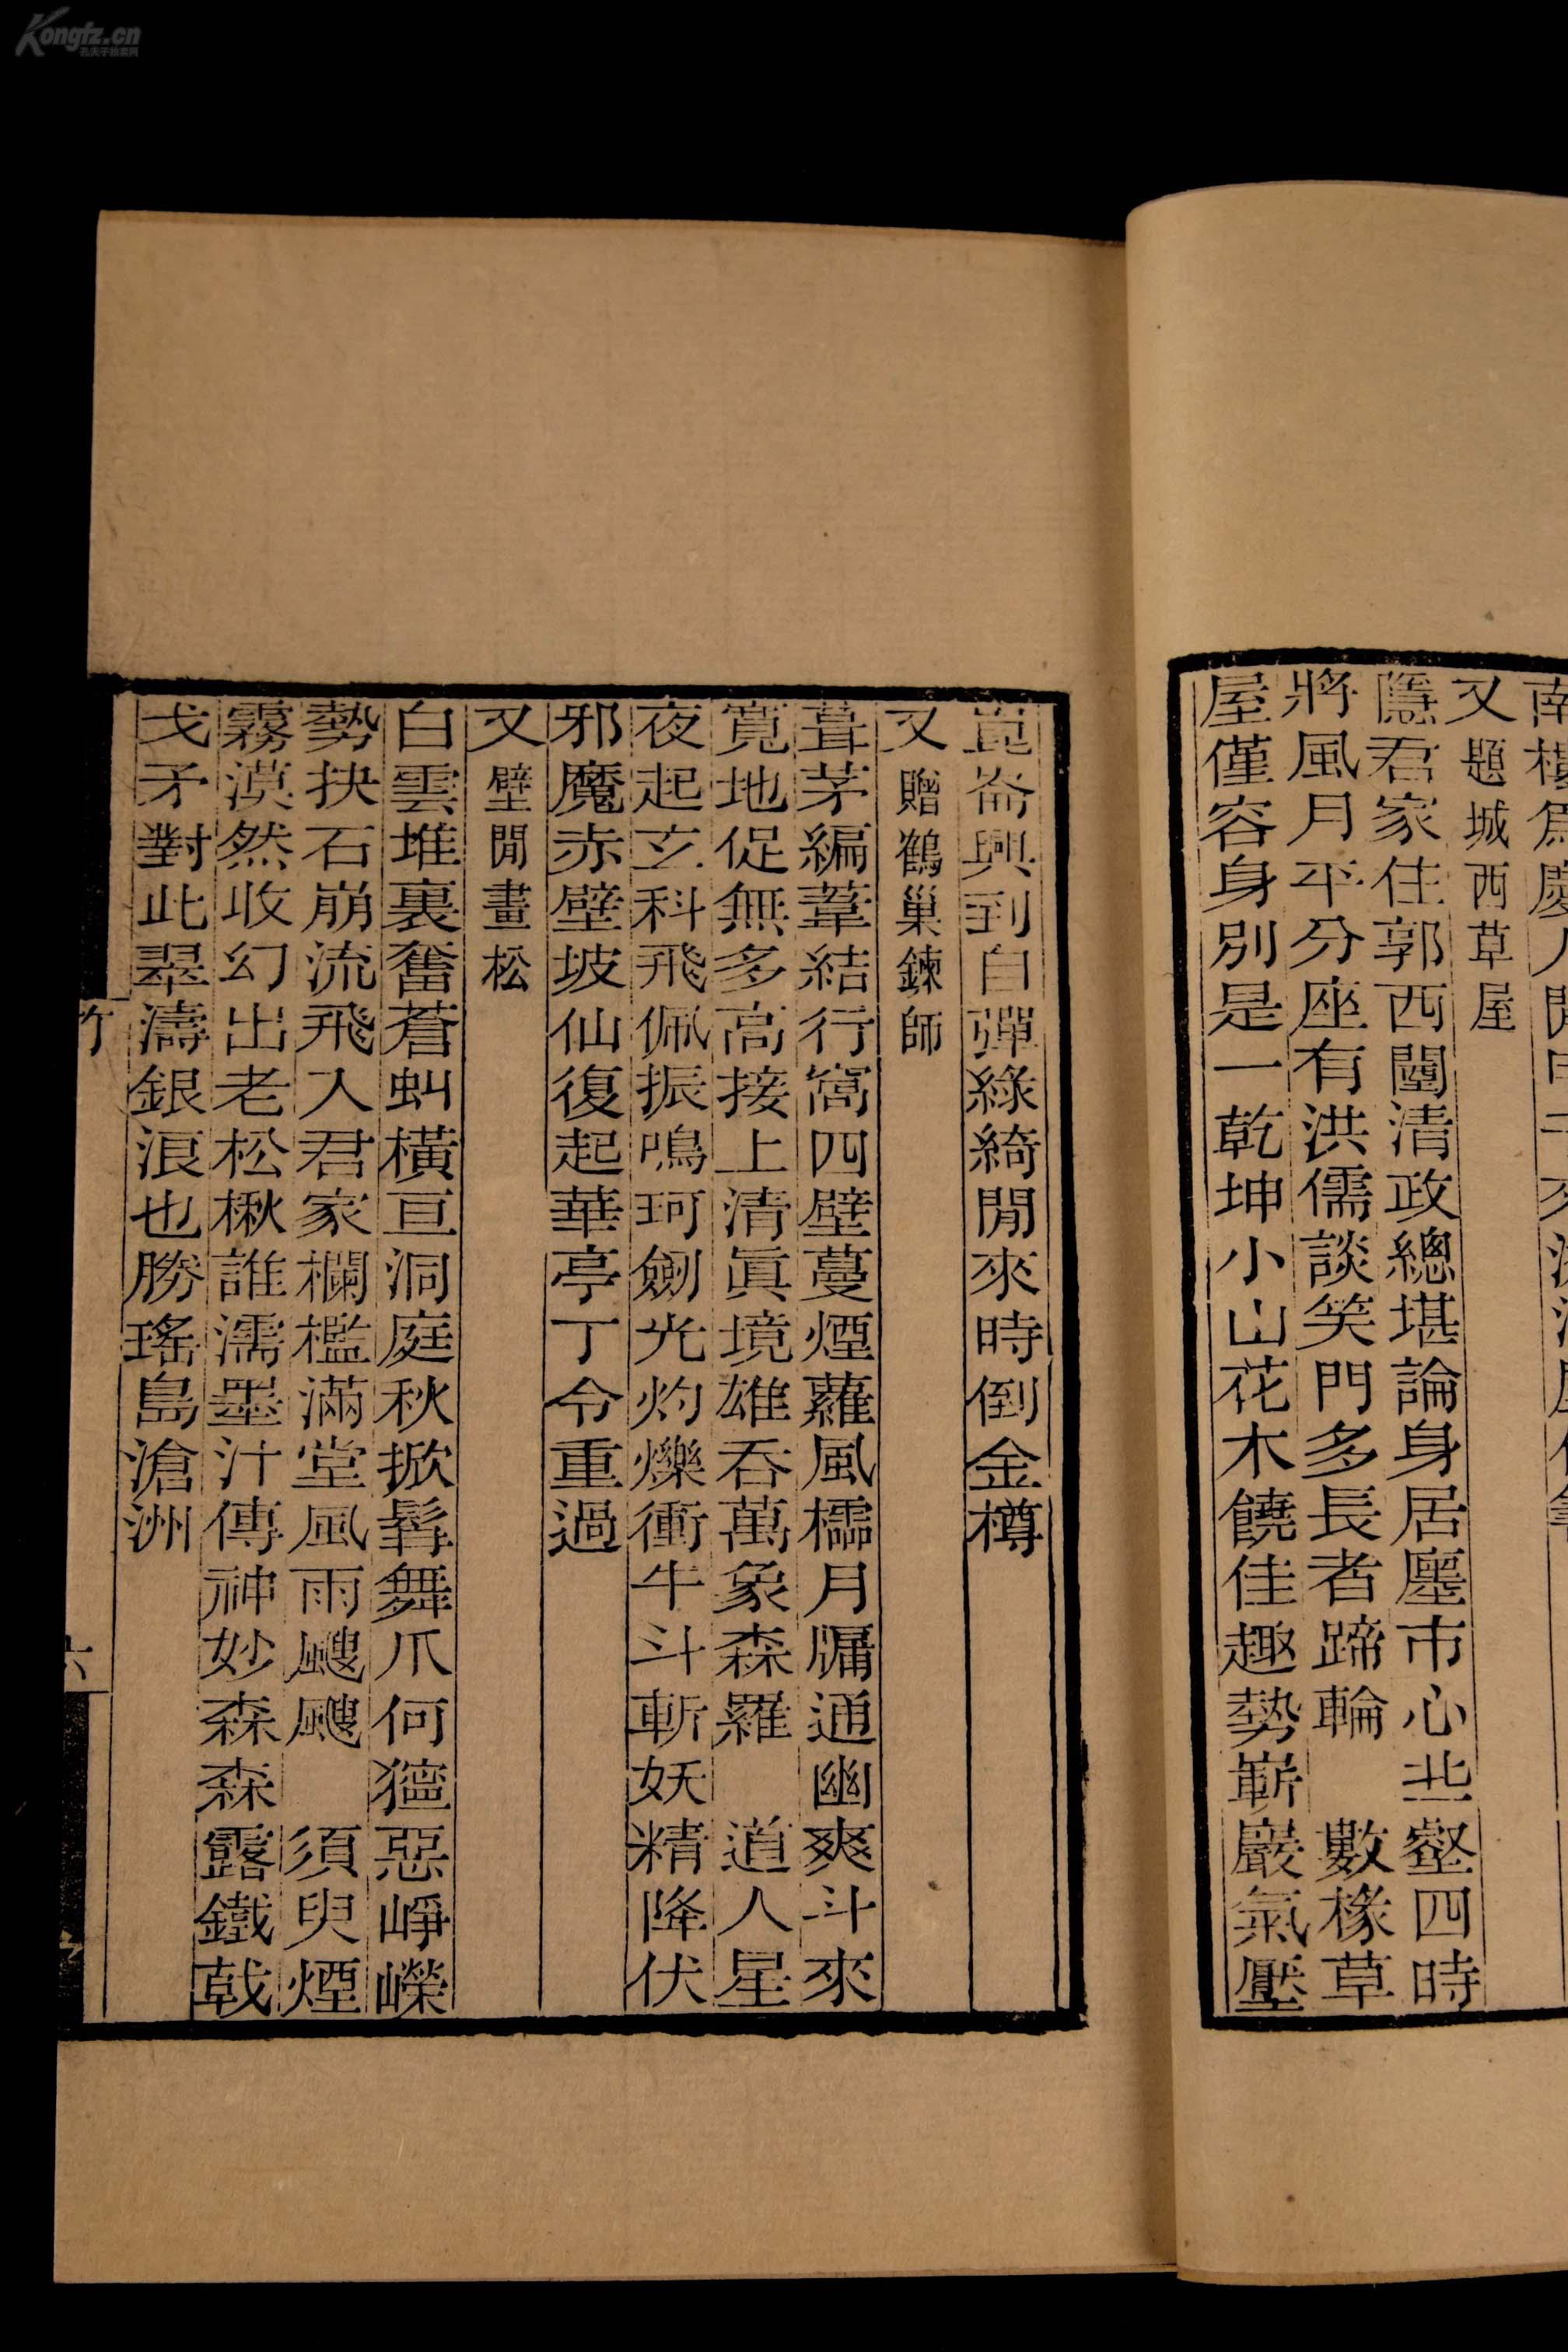 Kongfz.cn
孔夫子旧书网
又題城西草屋
隱君家住郭西闉清政總堪論身居廛市心丠壑四時
將風月平分座有洪儒談笑門多長者蹄輪　數椽草
屋僅容身別是一乾坤小山花木饒佳趣勢嶄巖氣壓
崑崙興到自彈綠綺閒來時倒金樽
又贈鶴巢鍊師
葺茅編葦結行窩四壁蔓煙蘿風櫺月牖通幽爽斗來
寬地促無多高接上清眞境雄吞萬象森羅　道人星
夜起玄科飛佩振鳴珂劒光灼爍衝牛斗斬妖精降伏
邪魔赤壁坡仙復起華亭丁令重過
又壁閒畫松
白雲堆裏奮蒼虯橫亘洞庭秋掀髯舞爪何獰惡崢嶸
勢抉石崩流飛入君家欄檻滿堂風雨颼颼　須臾煙
霧漠然收幻出老松楸誰濡墨汁傳神妙森森露鐵戟
戈矛對此翠濤銀浪也勝瑤島滄洲
六